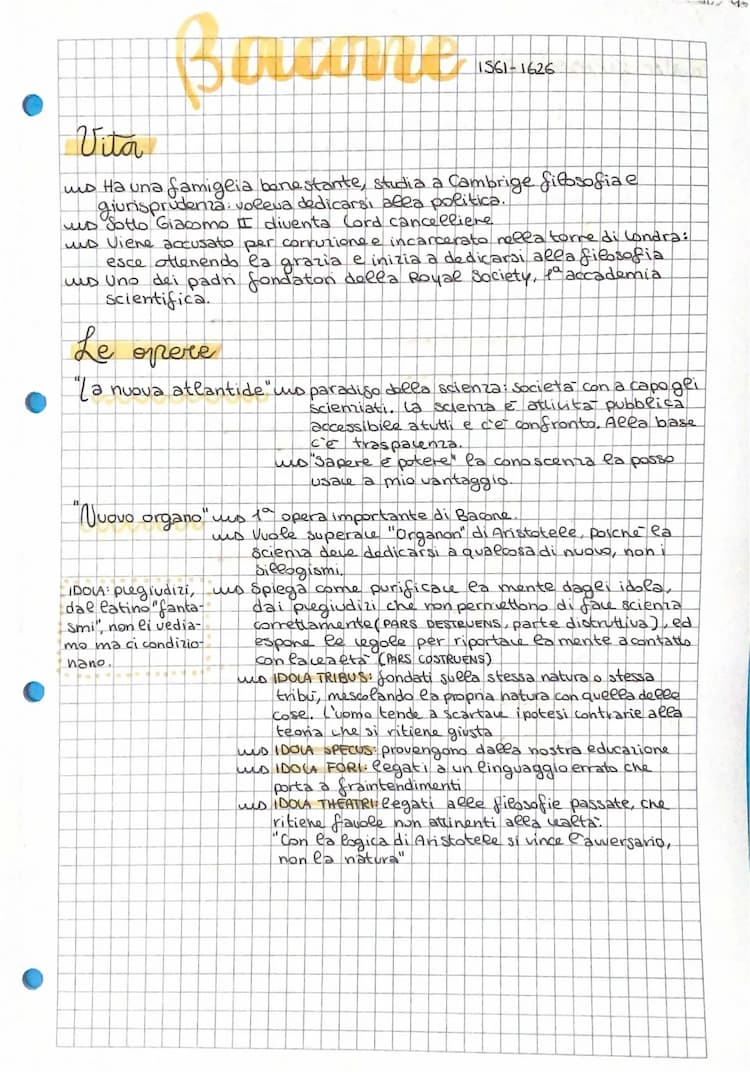 Bacone 1561-1626
Vita
Ha una famiglia benestante, studia a Cambrige filosofia e
giurisprudenza: voleva dedicarsi alla politica.
Sotto Giacomo II diventa Lord cancelliere
Viene accusato per corruzione e incarcerato nella torre di Londra:
esce ottenendo la grazia e inizia a dedicarsi alla filosofia
Uno dei padri fondatori della Royal Society, 1ª accademia
scientifica.
Le opere
"La nuova atlantide" paradiso della scienza: società con a capo gli
scienziati. La scienza è attività pubblica
accessibile a tutti e c'è confronto. Alla base
c'è trasparenza.
"Sapere è potere" la conoscenza la posso
usare a mio vantaggio.
"Nuovo organo" 1ª opera importante di Bacone.
Vuole superare "Organon" di Aristotele, poiché la
scienza deve dedicarsi a qualcosa di nuovo, non i
sillogismi.
IDOLA: pregiudizi,
dal latino "fanta-
smi", non li vedia-
mo ma ci condizio-
nano.
Spiega come purificare la mente dagli idola,
dai pregiudizi che non permettono di fare scienza
correttamente (PARS DESTRUENS, parte distruttiva), ed
espone le regole per riportare la mente a contatto
con la realtà (PARS COSTRUENS)
IDOLA TRIBUS: fondati sulla stessa natura o stessa
tribù, mescolando la propria natura con quella delle
cose. L'uomo tende a scartare ipotesi contrarie alla
teoria che si ritiene giusta
IDOLA SPECUS: provengono dalla nostra educazione
IDOLA FORI: legati a un linguaggio errato che
porta a fraintendimenti
IDOLA THEATRI: legati alle filosofie passate, che
ritiene favole non attinenti alla realtà.
"Con la logica di Aristotele si vince l'avversario,
non la natura"